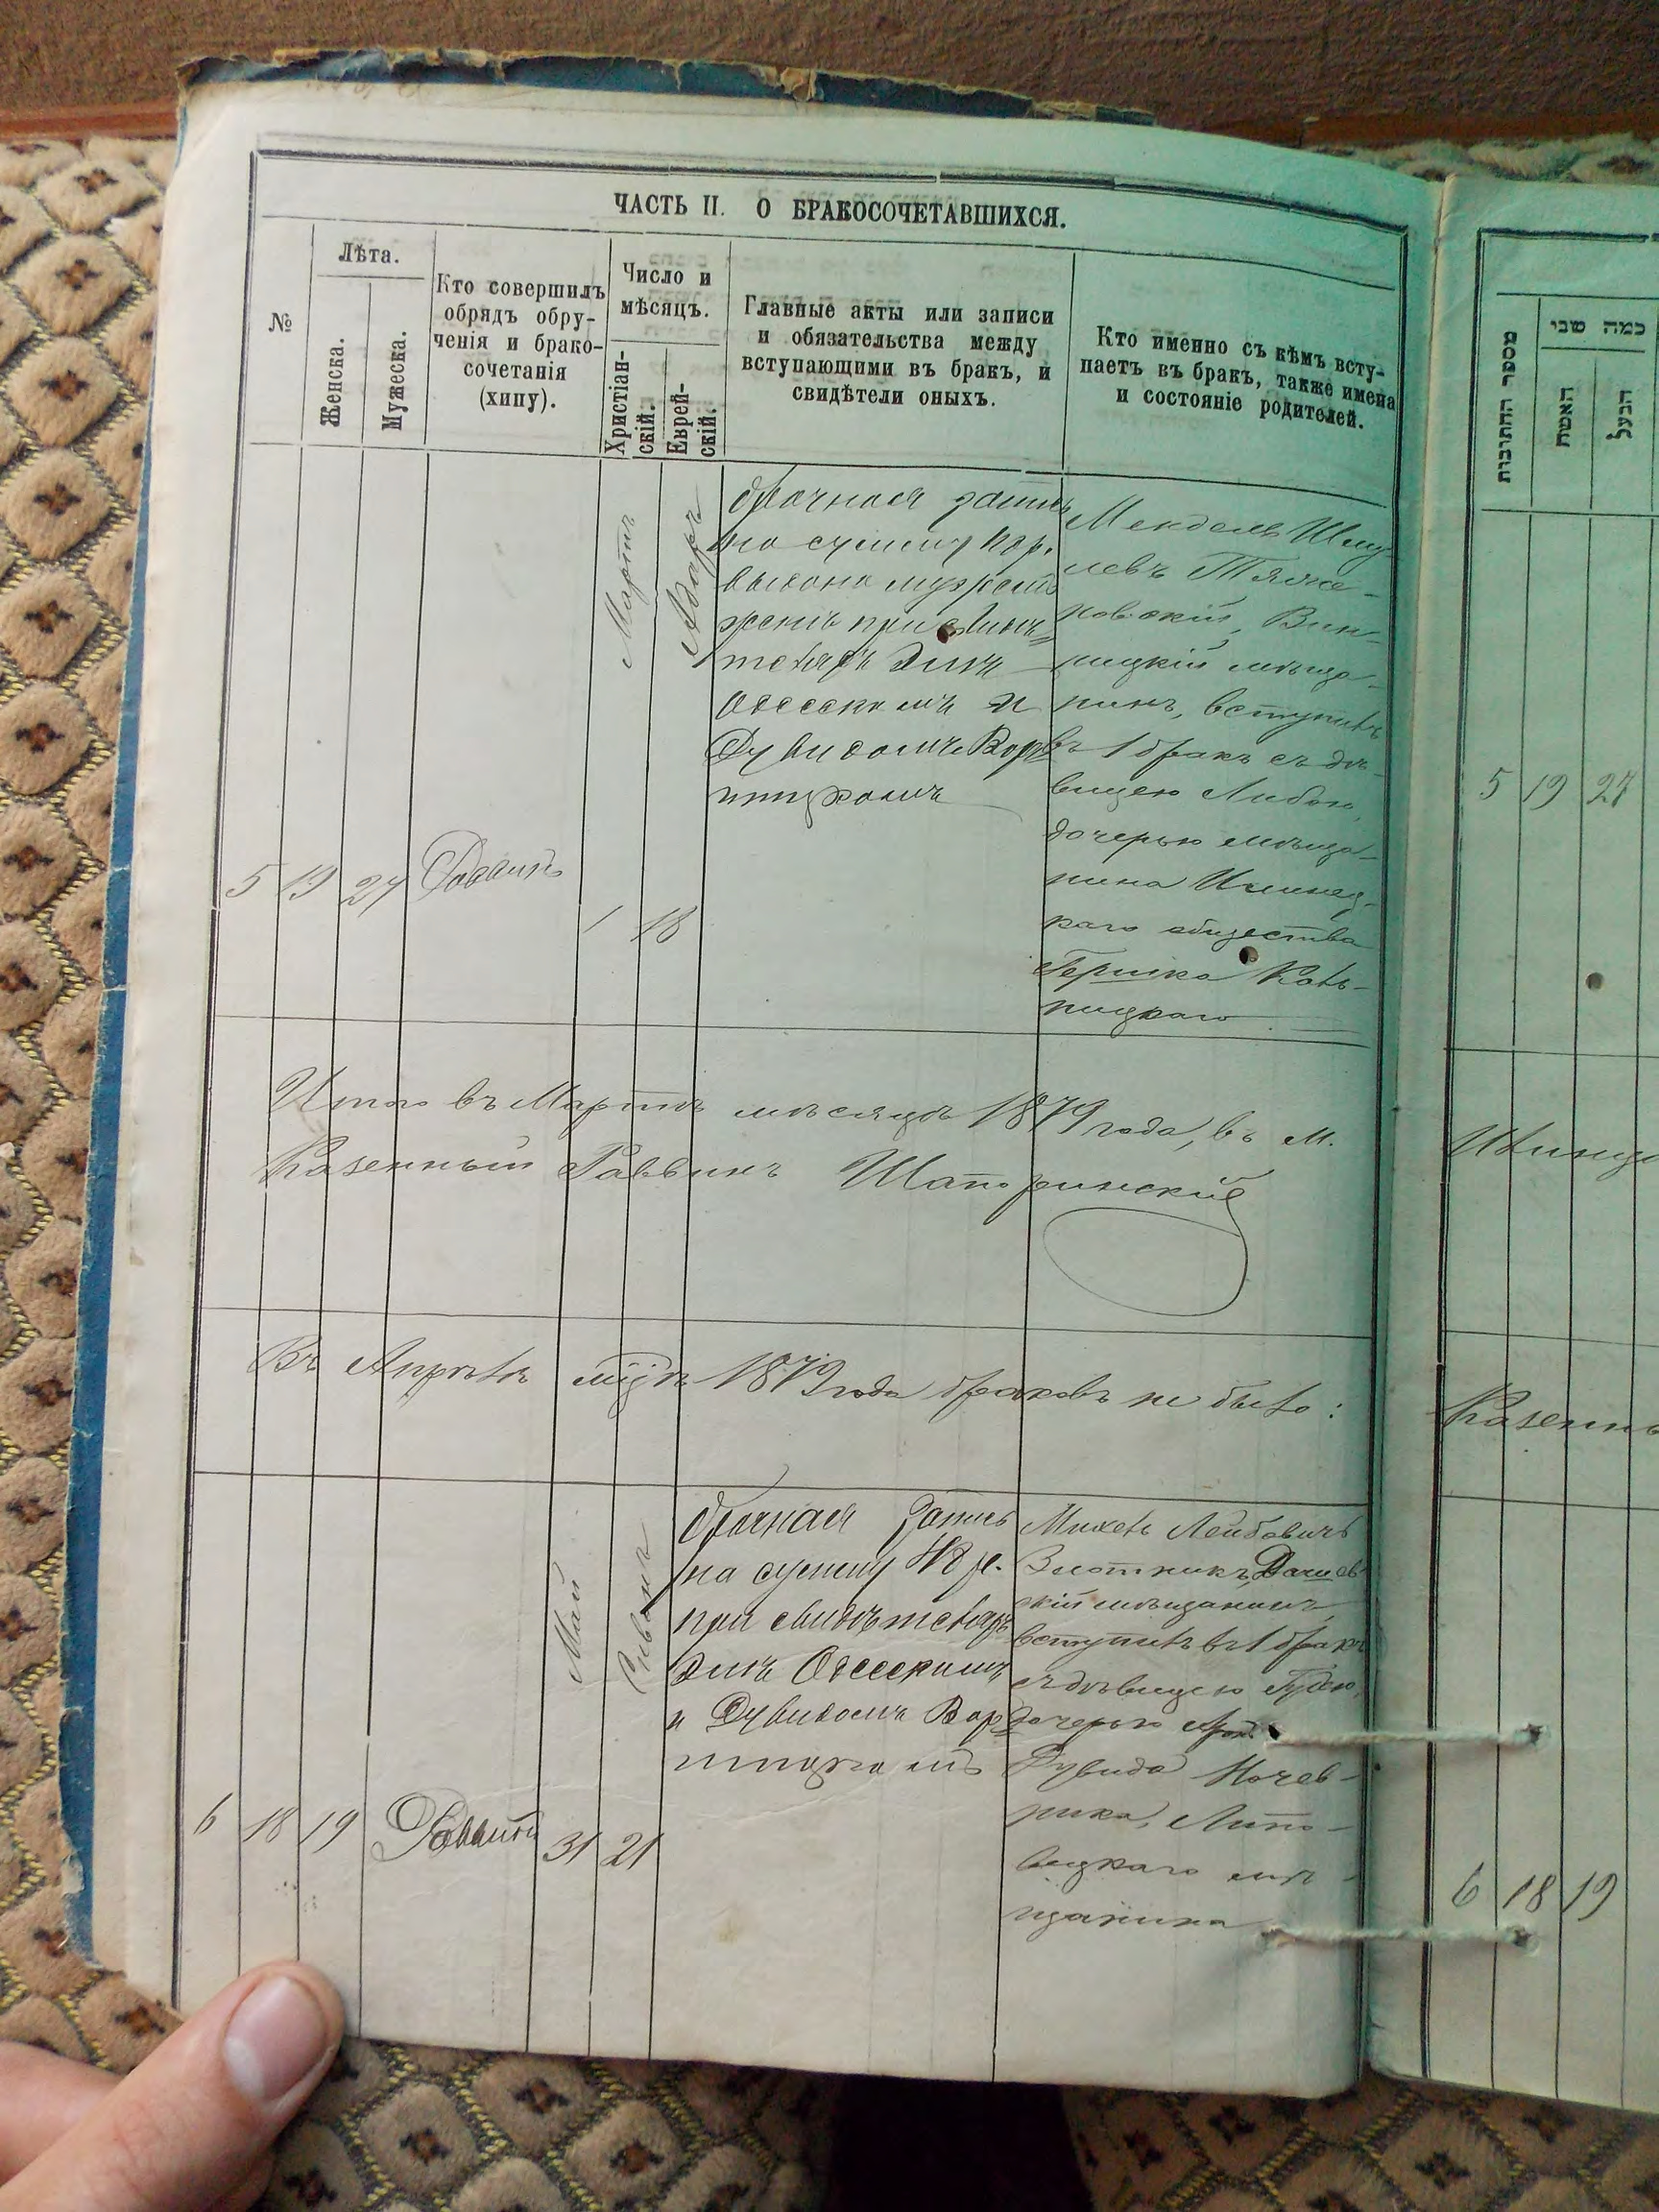 ЧАСТЬ II. О БРАКОСОЧЕТАВШИХСЯ.
№
Лѣта.
Женска.
Мужеска.
Кто совершилъ
обрядъ обру-
ченія и брако-
сочетанія
(хипу).
Число и
мѣсяцъ.
Христіан-
скій.
Еврей-
скій.
Главные акты или записи
и обязательства между
вступающими въ бракъ, и
свидѣтели оныхъ.
Кто именно съ кѣмъ всту-
паетъ въ бракъ, также имена
и состояніе родителей.
5
19
27
Раввинъ
Мартъ
1
Адаръ
18
брачная запись
на сумму
жени при свидѣ-
теляхъ
Одесскомъ и
Дувидомъ
Мендель Шму
левъ
ковскій, Вин-
ницкій мѣща-
нинъ, вступилъ
въ 1 бракъ съ дѣ-
вицею Либою,
дочерью мѣща-
нина
каго общества
Гершка
ницкаго
Итого въ Мартѣ мѣсяцѣ 1879 года, въ м.
Казенный Раввинъ
Въ Апрѣлѣ мцѣ 1879 года браковъ не было:
6
18
19
Раввинъ
Май
31
Сиванъ
21
брачная запись
на сумму 48 р.
при свидѣтеляхъ
Одесскимъ
и Дувидомъ Вор
Михель Лейбовичъ
Злотникъ, Дашев
скій мѣщанинъ,
вступилъ въ 1 бракъ
съ дѣвицею
дочерью
Дувида
Липо-
вецкаго мѣ-
щанина
מספר החתונות
כמה שני
האשה
הבעל
5 19 27
Казенн
6 18 19